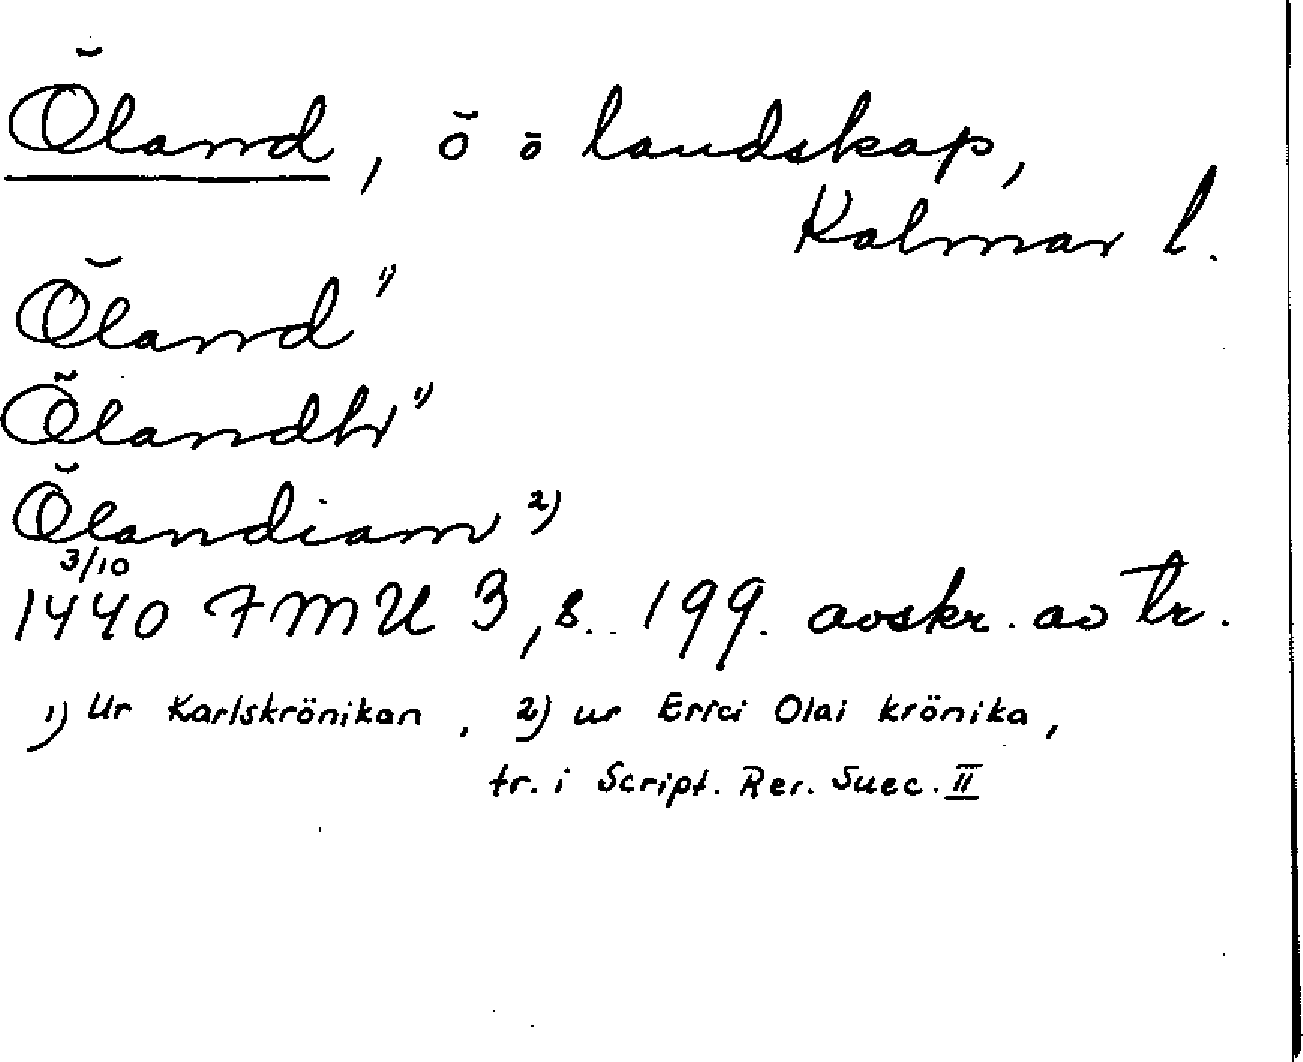 Öland, ö o landskap,
Kalmar l.
Öland 1)
Ölandh 1)
Ölandiam 2)
3/10
1440 FMU 3, s. 199. avskr. av tr.
1) Ur Karlskrönikan, 2) ur Erici Olai krönika,
tr. i Script. Rer. Suec. II